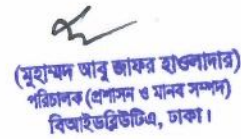 (মুহাম্মদ আবু জাফর হাওলাদার)
পরিচালক (প্রশাসন ও মানব সম্পদ)
বিআইডব্লিউটিএ, ঢাকা।